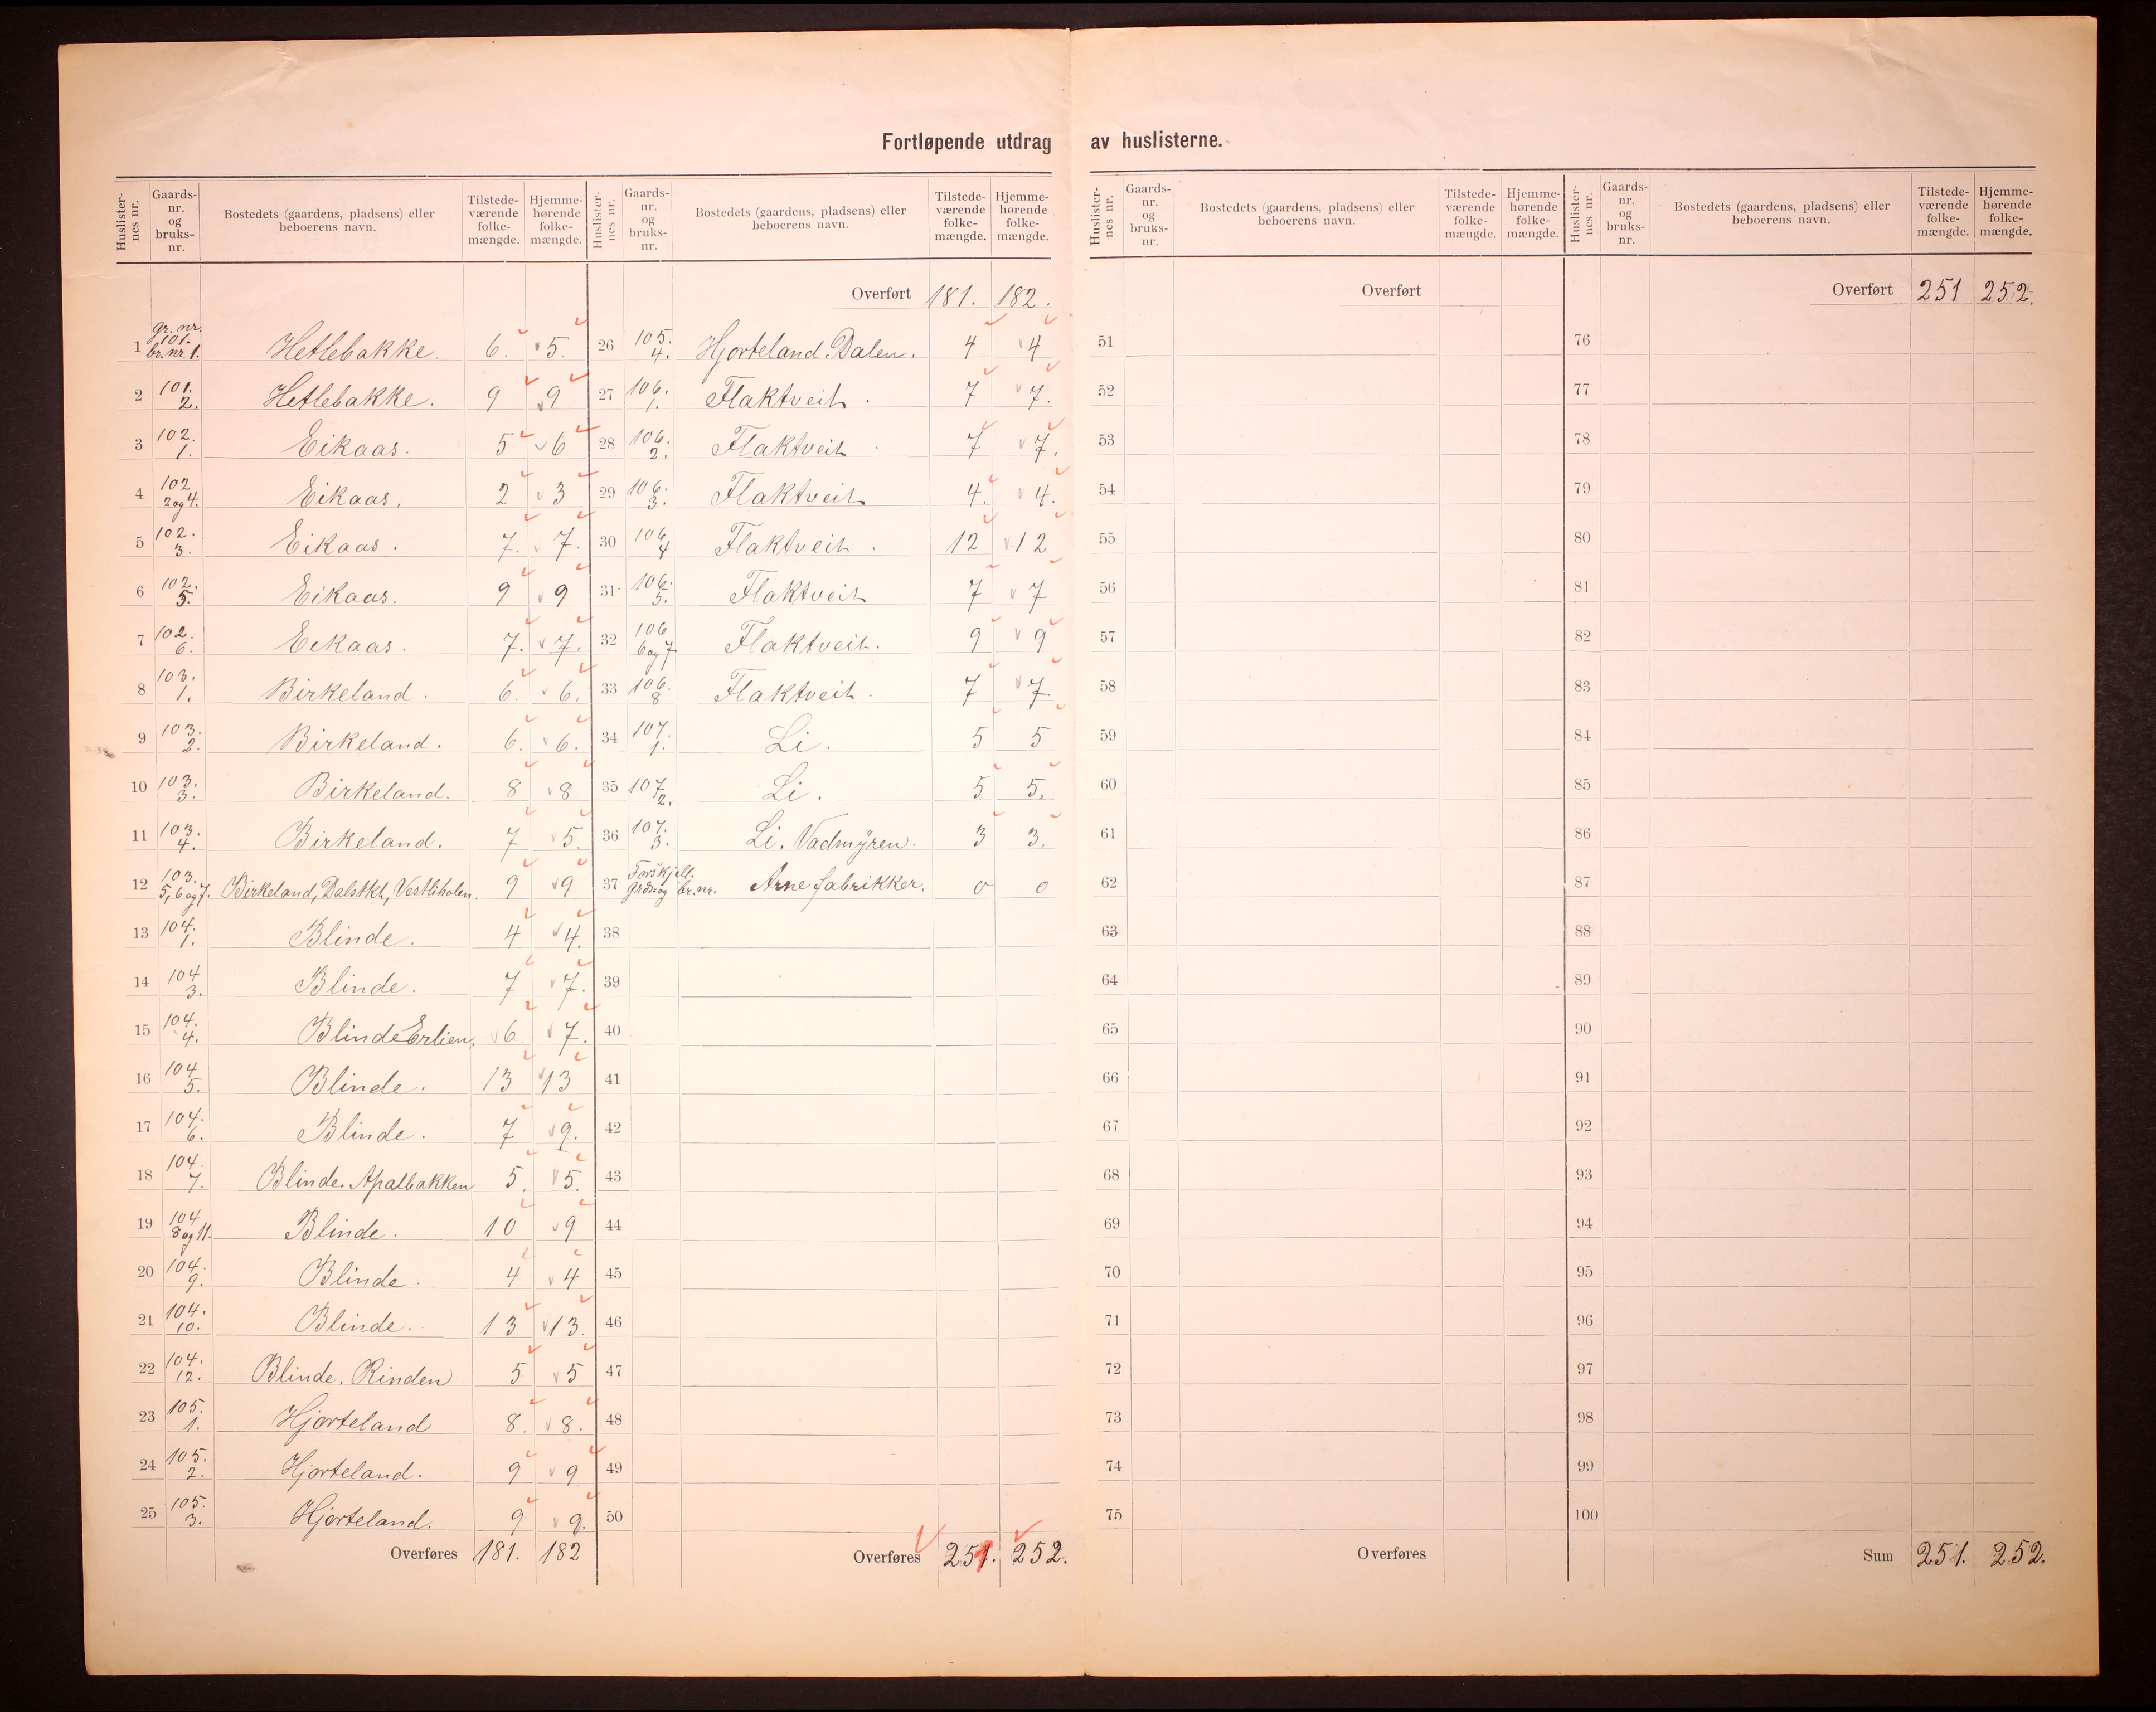 Fortløpende utdrag av huslisterne.
Huslister-nes nr. Gaards-nr. og bruks-nr. Bostedets (gaardens, pladsens) eller beboerens navn. Tilstede-værende folke-mængde. Hjemme-hørende folke-mængde.
gr. nr.
1 101. br. nr. 1. Hetlebakke. 6. 5.
2 101. 2. Hetlebakke. 9 9
3 102. 1. Eikaas. 5 6
4 102 2 og 4. Eikaas. 2 3
5 102. 3. Eikaas. 7. 7.
6 102. 5. Eikaas. 9 9
7 102. 6. Eikaas. 7. 7.
8 103. 1. Birkeland. 6. 6.
9 103. 2. Birkeland. 6. 6.
10 103. 3. Birkeland. 8 8
11 103. 4. Birkeland. 7 5.
12 103. 5, 6 og 7. Birkeland, Vestliholen. 9 9
13 104. 1. Blinde. 4 4.
14 104 3. Blinde. 7 7.
15 104. 4. Blinde Erlien. 6 7.
16 104 5. Blinde. 13 13
17 104. 6. Blinde. 7 9.
18 104. 7. Blinde. Apalbakken 5. 5.
19 104 8 og 11. Blinde. 10 9
20 104. 9. Blinde. 4 4
21 104. 10. Blinde. 13 13.
22 104. 12. Blinde. Rinden 5 5
23 105. 1. Hjorteland 8. 8.
24 105. 2. Hjorteland. 9 9
25 105. 3. Hjorteland. 9 9.
Overføres 181. 182
Huslister-nes nr. Gaards-nr. og bruks-nr. Bostedets (gaardens, pladsens) eller beboerens navn. Tilstede-værende folke-mængde. Hjemme-hørende folke-mængde.
Overført 181. 182.
26 105. 4. Hjorteland. Dalen. 4 4
27 106. 1. Flaktveit. 7 7.
28 106. 2. Flaktveit 7 7.
29 106. 3. Flaktveit 4. 4.
30 106. 4 Flaktveit. 12 12
31 106. 5. Flaktveit 7 7
32 106 6 og 7 Flaktveit. 9 9
33 106. 8 Flaktveit. 7 7
34 107. 1. Li. 5 5
35 107 2. Li. 5 5.
36 107. 3. Li. Vadmyren. 3 3.
37 Forskjell. grds og br. nr. Arne fabrikker. 0 0
38
39
40
41
42
43
44
45
46
47
48
49
50
Overføres 251. 252.
Huslister-nes nr. Gaards-nr. og bruks-nr. Bostedets (gaardens, pladsens) eller beboerens navn. Tilstede-værende folke-mængde. Hjemme-hørende folke-mængde.
Overført
51
52
53
54
55
56
57
58
59
60
61
62
63
64
65
66
67
68
69
70
71
72
73
74
75
Overføres
Huslister-nes nr. Gaards-nr. og bruks-nr. Bostedets (gaardens, pladsens) eller beboerens navn. Tilstede-værende folke-mængde. Hjemme-hørende folke-mængde.
Overført 251 252.
76
77
78
79
80
81
82
83
84
85
86
87
88
89
90
91
92
93
94
95
96
97
98
99
100
Sum 251. 252.